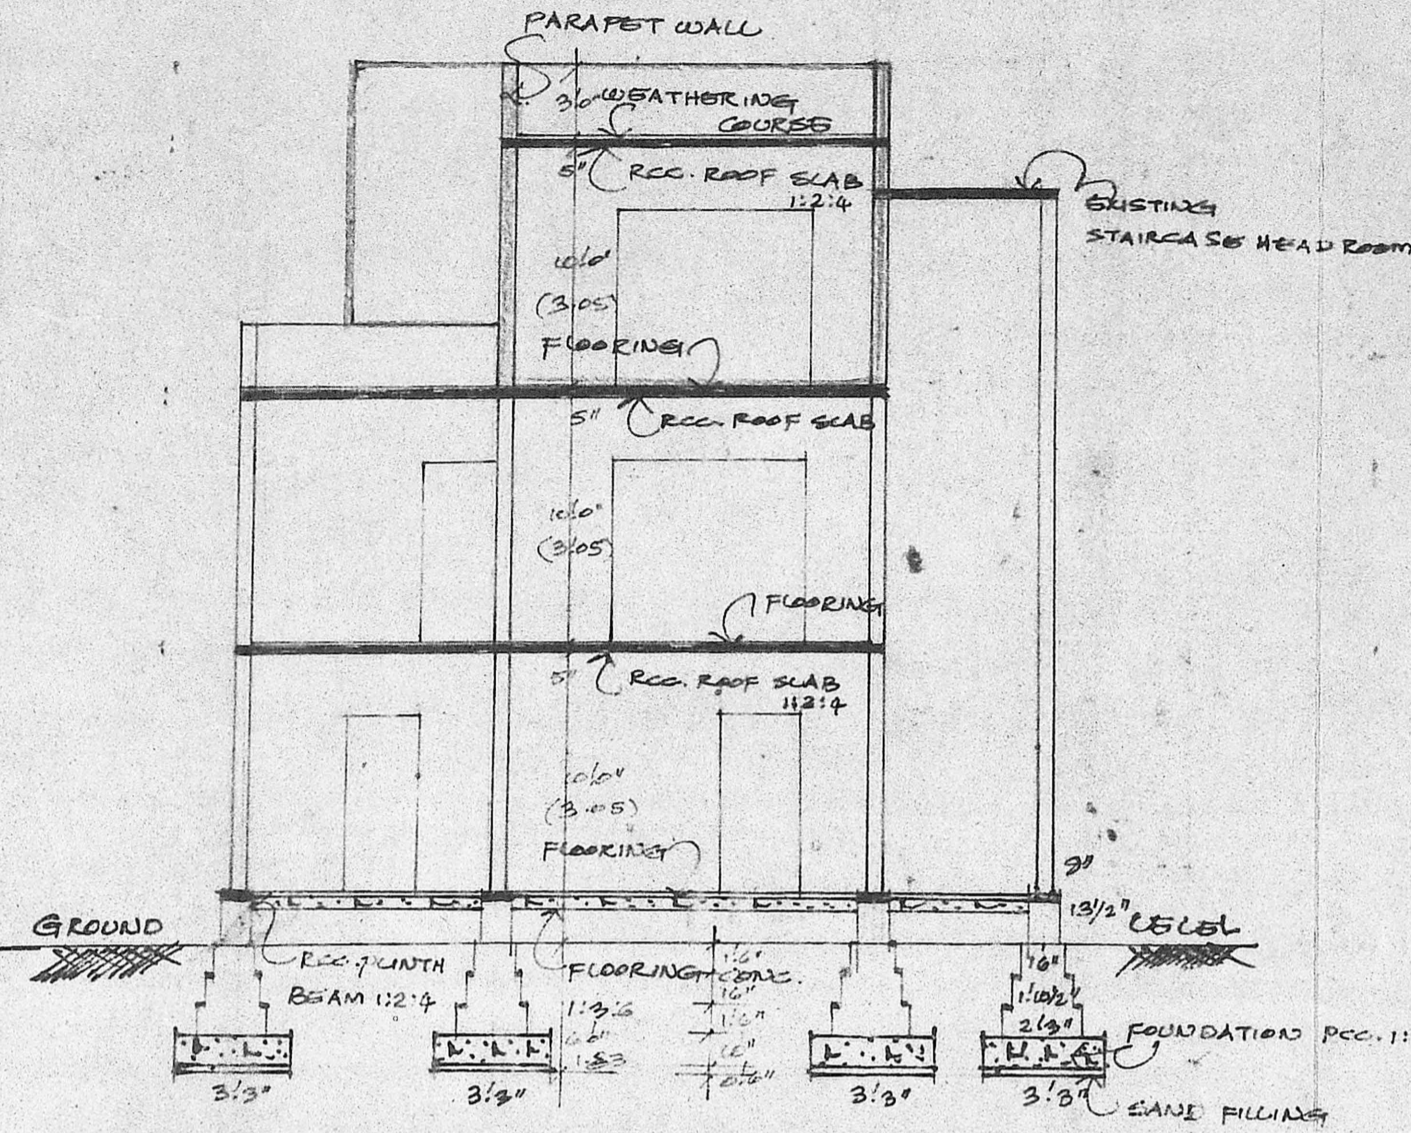 PARAPET WALL
3'6" WEATHERING
COURSE
5" RCC. ROOF SLAB
1:2:4
EXISTING
STAIRCASE HEAD ROOM
10'0"
(3.05)
FLOORING
5" RCC. ROOF SLAB
10'0"
(3.05)
FLOORING
5" RCC. ROOF SLAB
1:2:4
10'0"
(3.05)
FLOORING
9"
13½"
GROUND
LEVEL
RCC. PLINTH
BEAM 1:2:4
FLOORING CONC.
1:3:6
1'6"
1'6"
1'10½"
2'3"
FOUNDATION PCC. 1:
3'3"
3'3"
3'3"
3'3"
SAND FILLING